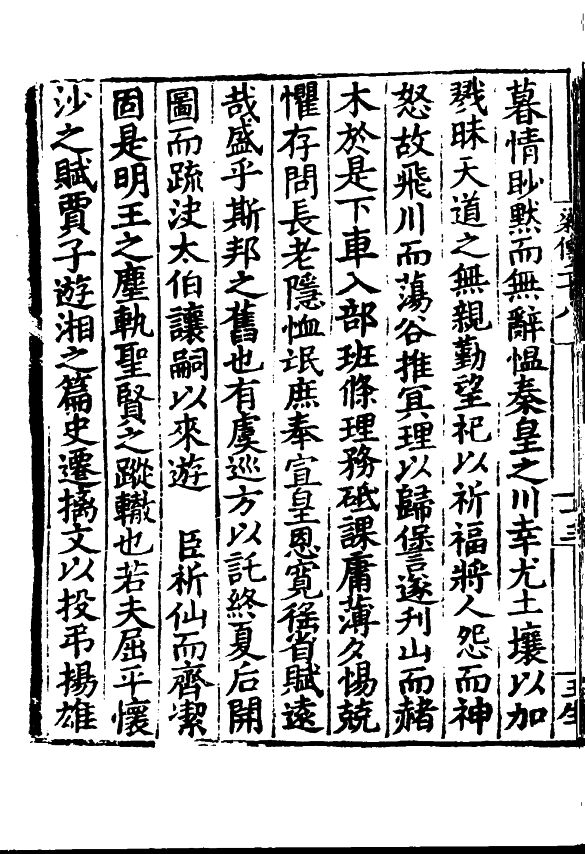 梁傳二十八
暮情眇默而無辭愠秦皇之川幸尤土壤以加
戮昧天道之無親勤望祀以祈福將人怨而神
怒故飛川而蕩谷推冥理以歸諐遂刋山而赭
木於是下車入部班條理務砥課庸薄夕惕兢
懼存問長老隱恤氓庶奉宣皇恩寛徭省賦遠
哉盛乎斯邦之舊也有虞巡方以託終夏后開
圖而疏決太伯讓嗣以來遊　臣祈仙而齊潔
固是明王之塵軌聖賢之蹤轍也若夫屈平懷
沙之賦賈子遊湘之篇史遷摛文以投弔揚雄